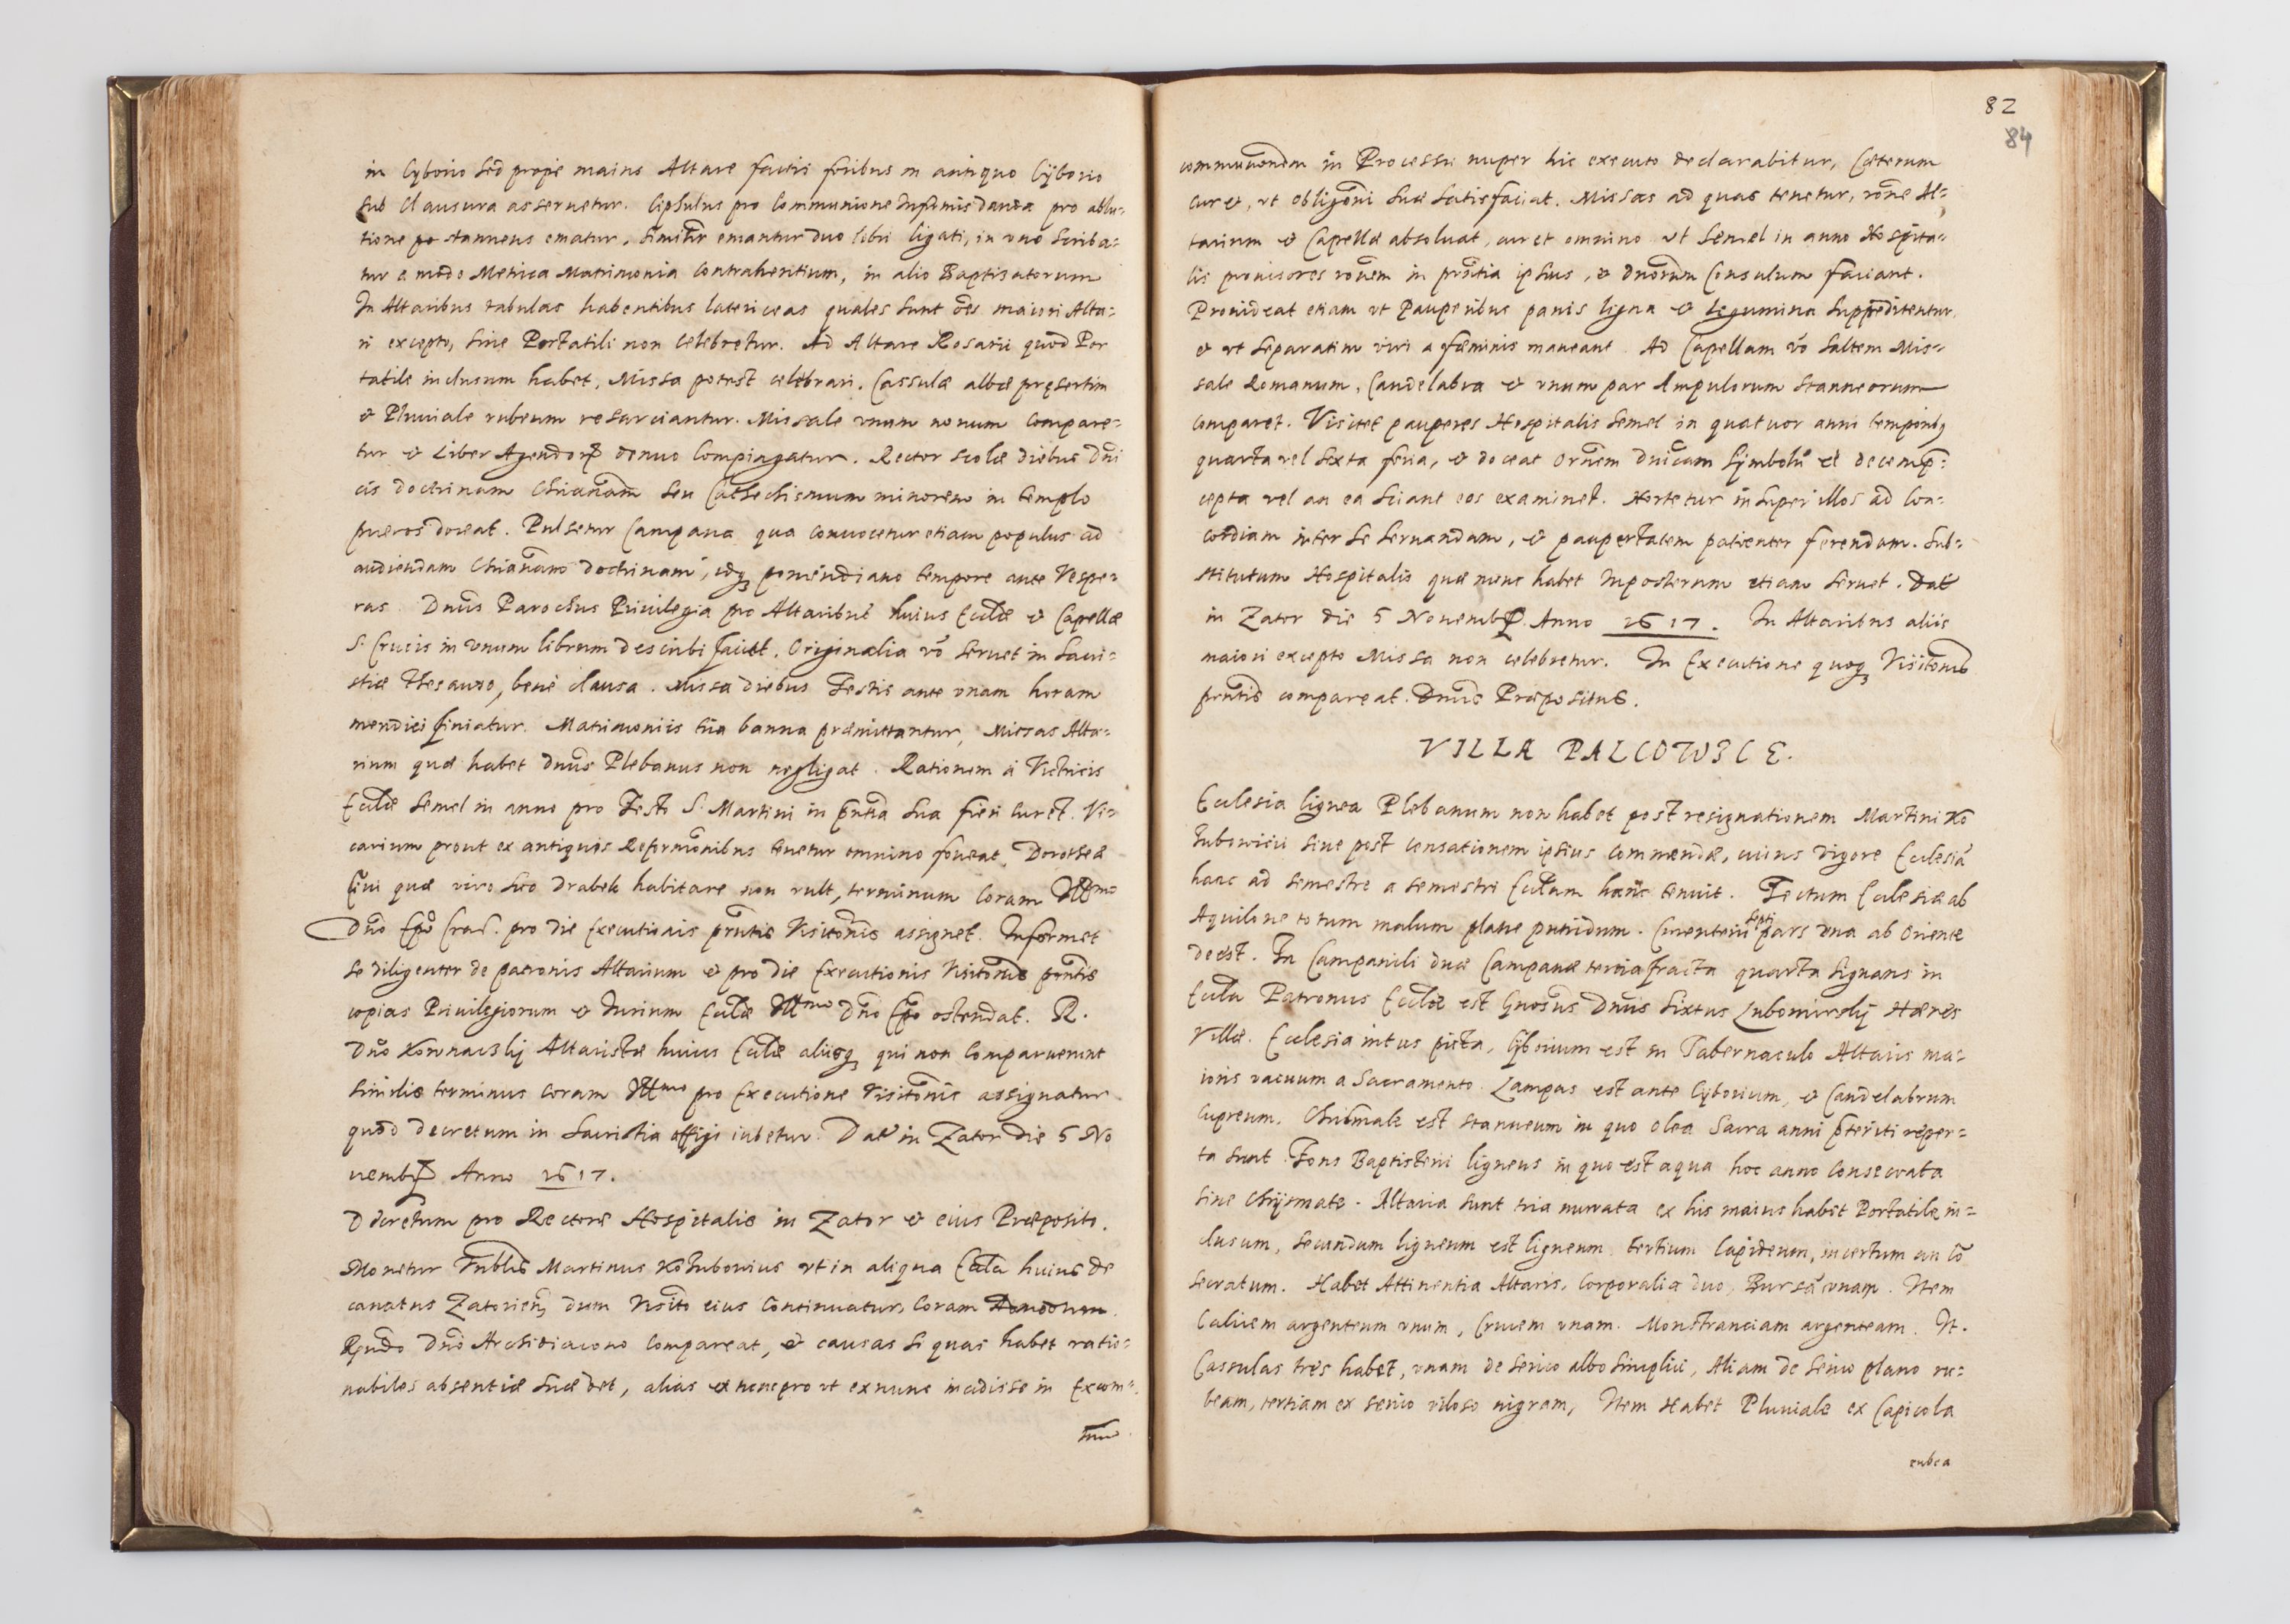 in Cyborio sed prope maius Altare factis foribus in antiquo Cyborio
sub clausura asseruetur. Ciphulus pro Communione Infirmis danda pro ablu-
tione stanneus ematur, similiter emantur duo libri ligati, in vno scriba-
tur a modo Metrica Matrimonia Contrahentium, in alio Baptisatorum
In Altaribus tabulas habentibus latericeas quales sunt oes maiori Alta-
ri excepto, sine Portatili non Celebretur. Ad Altare Rosarii quod Por
tatile inclusum habet, Missa potest celebrari. Cassulæ albæ pręsertim
& Pluuiale rubeum resarciantur. Missale vnum nouum Compare-
tur & Liber Agendor denuo Compingatur. Rector scolæ diebus Dni
cis doctrinam Chrianam seu Cathechismum minorem in templo
pueros doceat. Pulsetur Campana qua conuocetur etiam populus ad
audiendam Chrianam doctrinam, idq pomeridiano tempore ante Vespe-
ras. Dnus Parochus Priuilegia pro Altaribus huius Ecclæ & Capellæ
S. Crucis in vnum librum describi faciat. Originalia vo seruet in Sacri-
stiæ Thesauro, bene clausa. Missa diebus Festis ante vnam horam
meridiei finiatur. Matrimoniis tria banna præmittantur, Missas Alta-
rium quæ habet Dnus Plebanus non negligat. Rationem a Vitricis
Ecclæ semel in anno pro Festo S. Martini in pntia sua fieri curet. Vi-
carium prout ex antiquis Reformonibus tenetur omnino foueat. Dorotheæ
quæ viro suo Drabek habitare non vult, terminum Coram Illmo
Dno Epo Crac. pro die Executionis pntis Visitonis assignet. Informet
se diligenter de patronis Altarium & pro die Executionis Visitonis pntis
copias Priuilegiorum & Iurium Ecclæ Illmo Dno Epo ostendat. R.
Dno Kownaczkij Altaristæ huius Ecclæ aliisq qui non Comparuerunt
similis terminus coram Illmo pro Executione Visitonis assignatur
quod decretum in Sacristia affigi iubetur. Dat in Zator die 5 No
uemb Anno 1617.
Decretum pro Rectore Hospitalis in Zator & eius Præposito.
Monetur Martinus Kotubouius vt in aliqua Eccla huius de
canatus Zatorien dum Visito eius Continuatur, Coram
Rndo Dno Archidiacono Compareat, & causas si quas habet ratio-
nabiles absentiæ suæ det, alias ex nunc pro vt ex nunc incidisse in Excom-
82
84
communionem in Processu nuper hic executo declarabitur, Cæterum
curet, vt obligoni suæ satisfaciat. Missas ad quas tenetur, rone Al-
tarium & Capellæ absoluat, curet omnino vt semel in anno Hospita-
lis prouisores ronem in prntia ipsius, & Dnorum Consulum faciant.
Prouideat etiam vt Pauperibus panis ligna & legumina suppeditentur
& vt separatim viri a fæminis maneant. Ad Capellam vo saltem Mis-
sale Romanum, Candelabra & vnum par Ampulorum stanneorum
Comparet. Visitet pauperes Hospitalis semel in quatuor anni temporib
quarta vel sexta feria, & doceat Ornem Dnicam Symbolu et decemp-
cepta vel an ea sciant eos examinet. Hortetur insuper illos ad Con-
cordiam inter se seruandam, & paupertatem patienter ferendam. Sub-
stitutum Hospitalis quæ nunc habet Inposterum etiam seruet. Dat
in Zator die 5 Nouemb Anno 1617. In Altaribus aliis
maiori excepto Missa non celebretur. In Executione quoq Visitonis
prntis compareat. Dnus Præpositus.
VILLA PALCOWSCE.
Ecclesia lignea Plebanum non habet post resignationem Martini Ko
tubowicii siue post censationem ipsius Commendæ, cuius vigore Ecclesia
hanc ad semestre a semestri Ecclam hanc tenuit. Tectum Ecclesiæ ab
Aquilone totum malum plane putridum. Cimenterii septi pars vna ab Oriente
deest. In Campanili duæ Campanæ tertia fracta quarta signans in
Eccla Patronus Ecclæ est Gnosus Dnus Sixtus Lubomirskij Hæres
Villæ. Ecclesia intus picta, Cyborium est in Tabernaculo Altaris ma-
ioris vacuum a Sacramento. Lampas est ante Cyborium, & Candelabrum
Cupreum. Chrismale est stanneum in quo olea Sacra anni pteriti reper-
ta sunt. Fons Baptisterii ligneus in quo est aqua hoc anno Consecrata
sine Chrysmate. Altaria sunt tria murata ex his maius habet Portatile in-
clusum, secundum ligneum est ligneum tertium lapideum, incertum an Co
secratum. Habet Attinentia Altaris, Corporalia duo, Bursa vnam. Item
Calicem argenteum vnum, Crucem vnam. Monstranciam argenteam. It.
Cassulas tres habet, vnam de serico albo simplici, Aliam de serico plano ru-
beam, tertiam ex serico viloso nigram, Item Habet Pluuiale ex Capicola
rubea